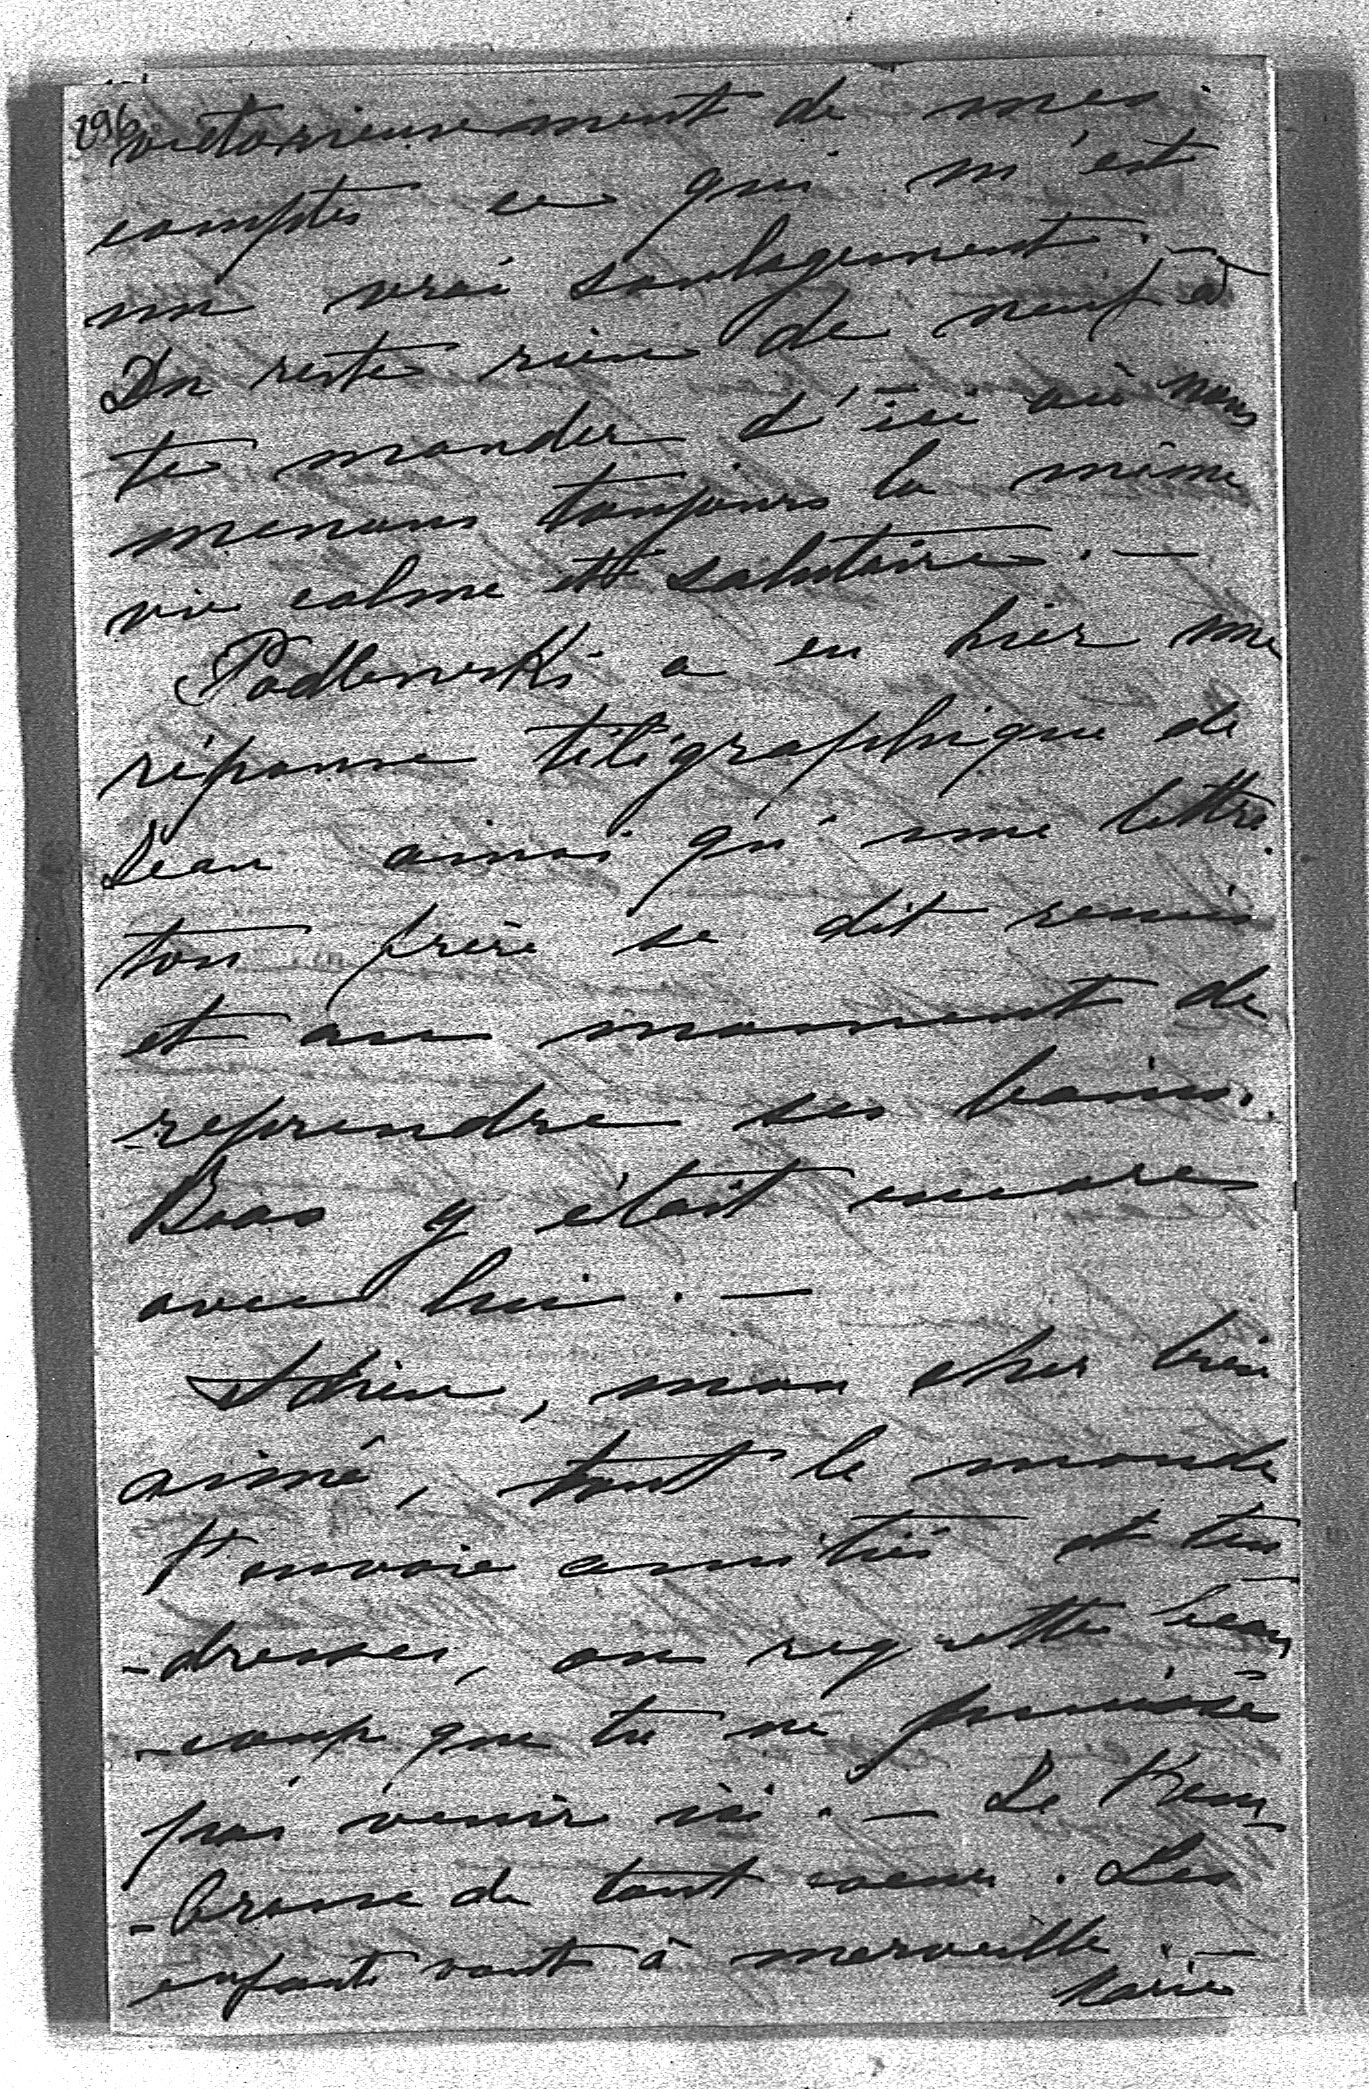 296
victorieusement de mes
comptes ce qui m'est
un vrai soulagement. —
Du reste rien de neuf à
te mander d'ici où nous
menons toujours la même
vie calme et salutaire. —
Podlewski a eu hier une
réponse télégraphique de
Léon ainsi qu'une lettre.
ton frère se dit remis
et au moment de
reprendre ses bains.
y était encore
avec lui. —
Adieu, mon cher bien
aimé, tout le monde
t'envoie amitiés et ten
-dresses, on regrette beau
-coup que tu ne puisse
pas venir ici. — Je t'em-
-brasse de tout coeur. Les
enfants vont à merveille. —
Marie